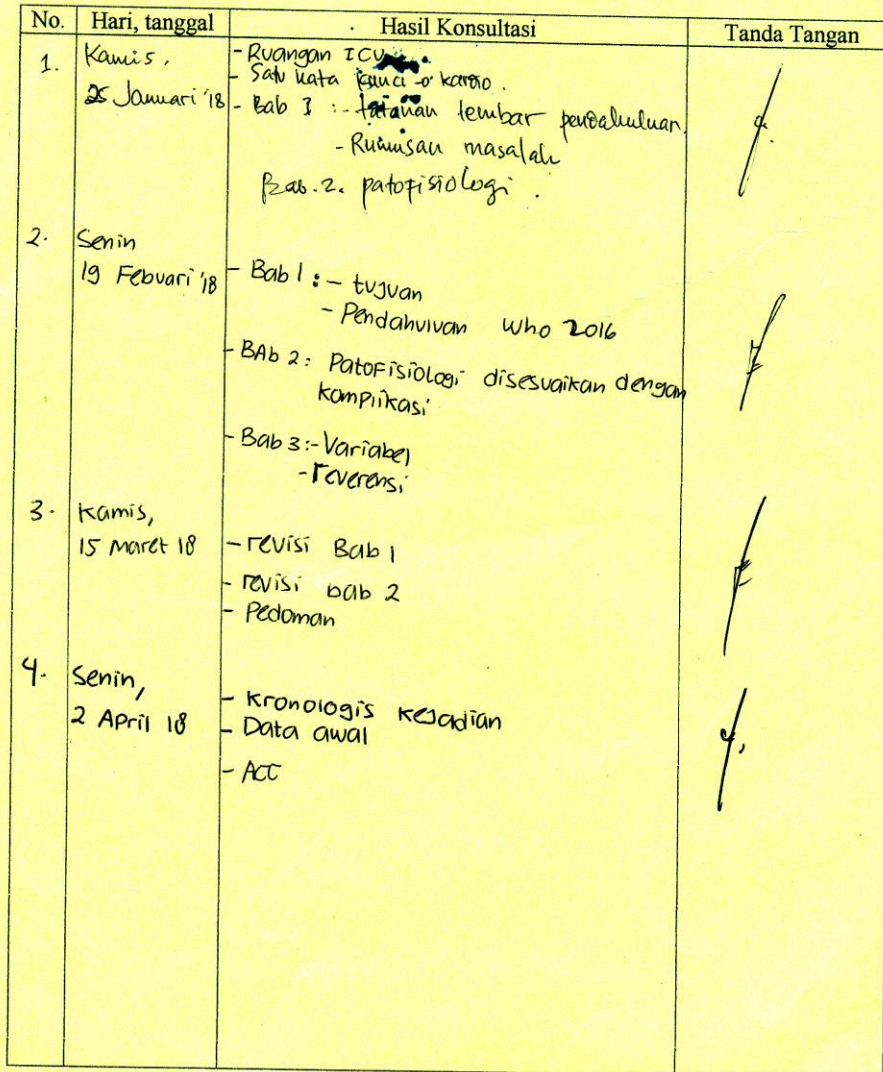 No. Hari, tanggal Hasil Konsultasi Tanda Tangan
1. Kamis, - Ruangan ICU
- Satu kata kunci kardio.
25 Januari '18 - Bab I : - tatanan lembar pendahuluan
- Rumusan masalah
Bab. 2. patofisiologi.
2. Senin
19 Febuari '18 - Bab 1 : - tujuan
- Pendahuluan WHO 2016
- BAb 2 : Patofisiologi disesuaikan dengan
komplikasi
- Bab 3 : - Variabel
- reverensi
3. Kamis,
15 Maret 18 - revisi Bab 1
- revisi bab 2
- Pedoman
4. Senin,
2 April 18 - Kronologis kejadian
- Data awal
- ACC